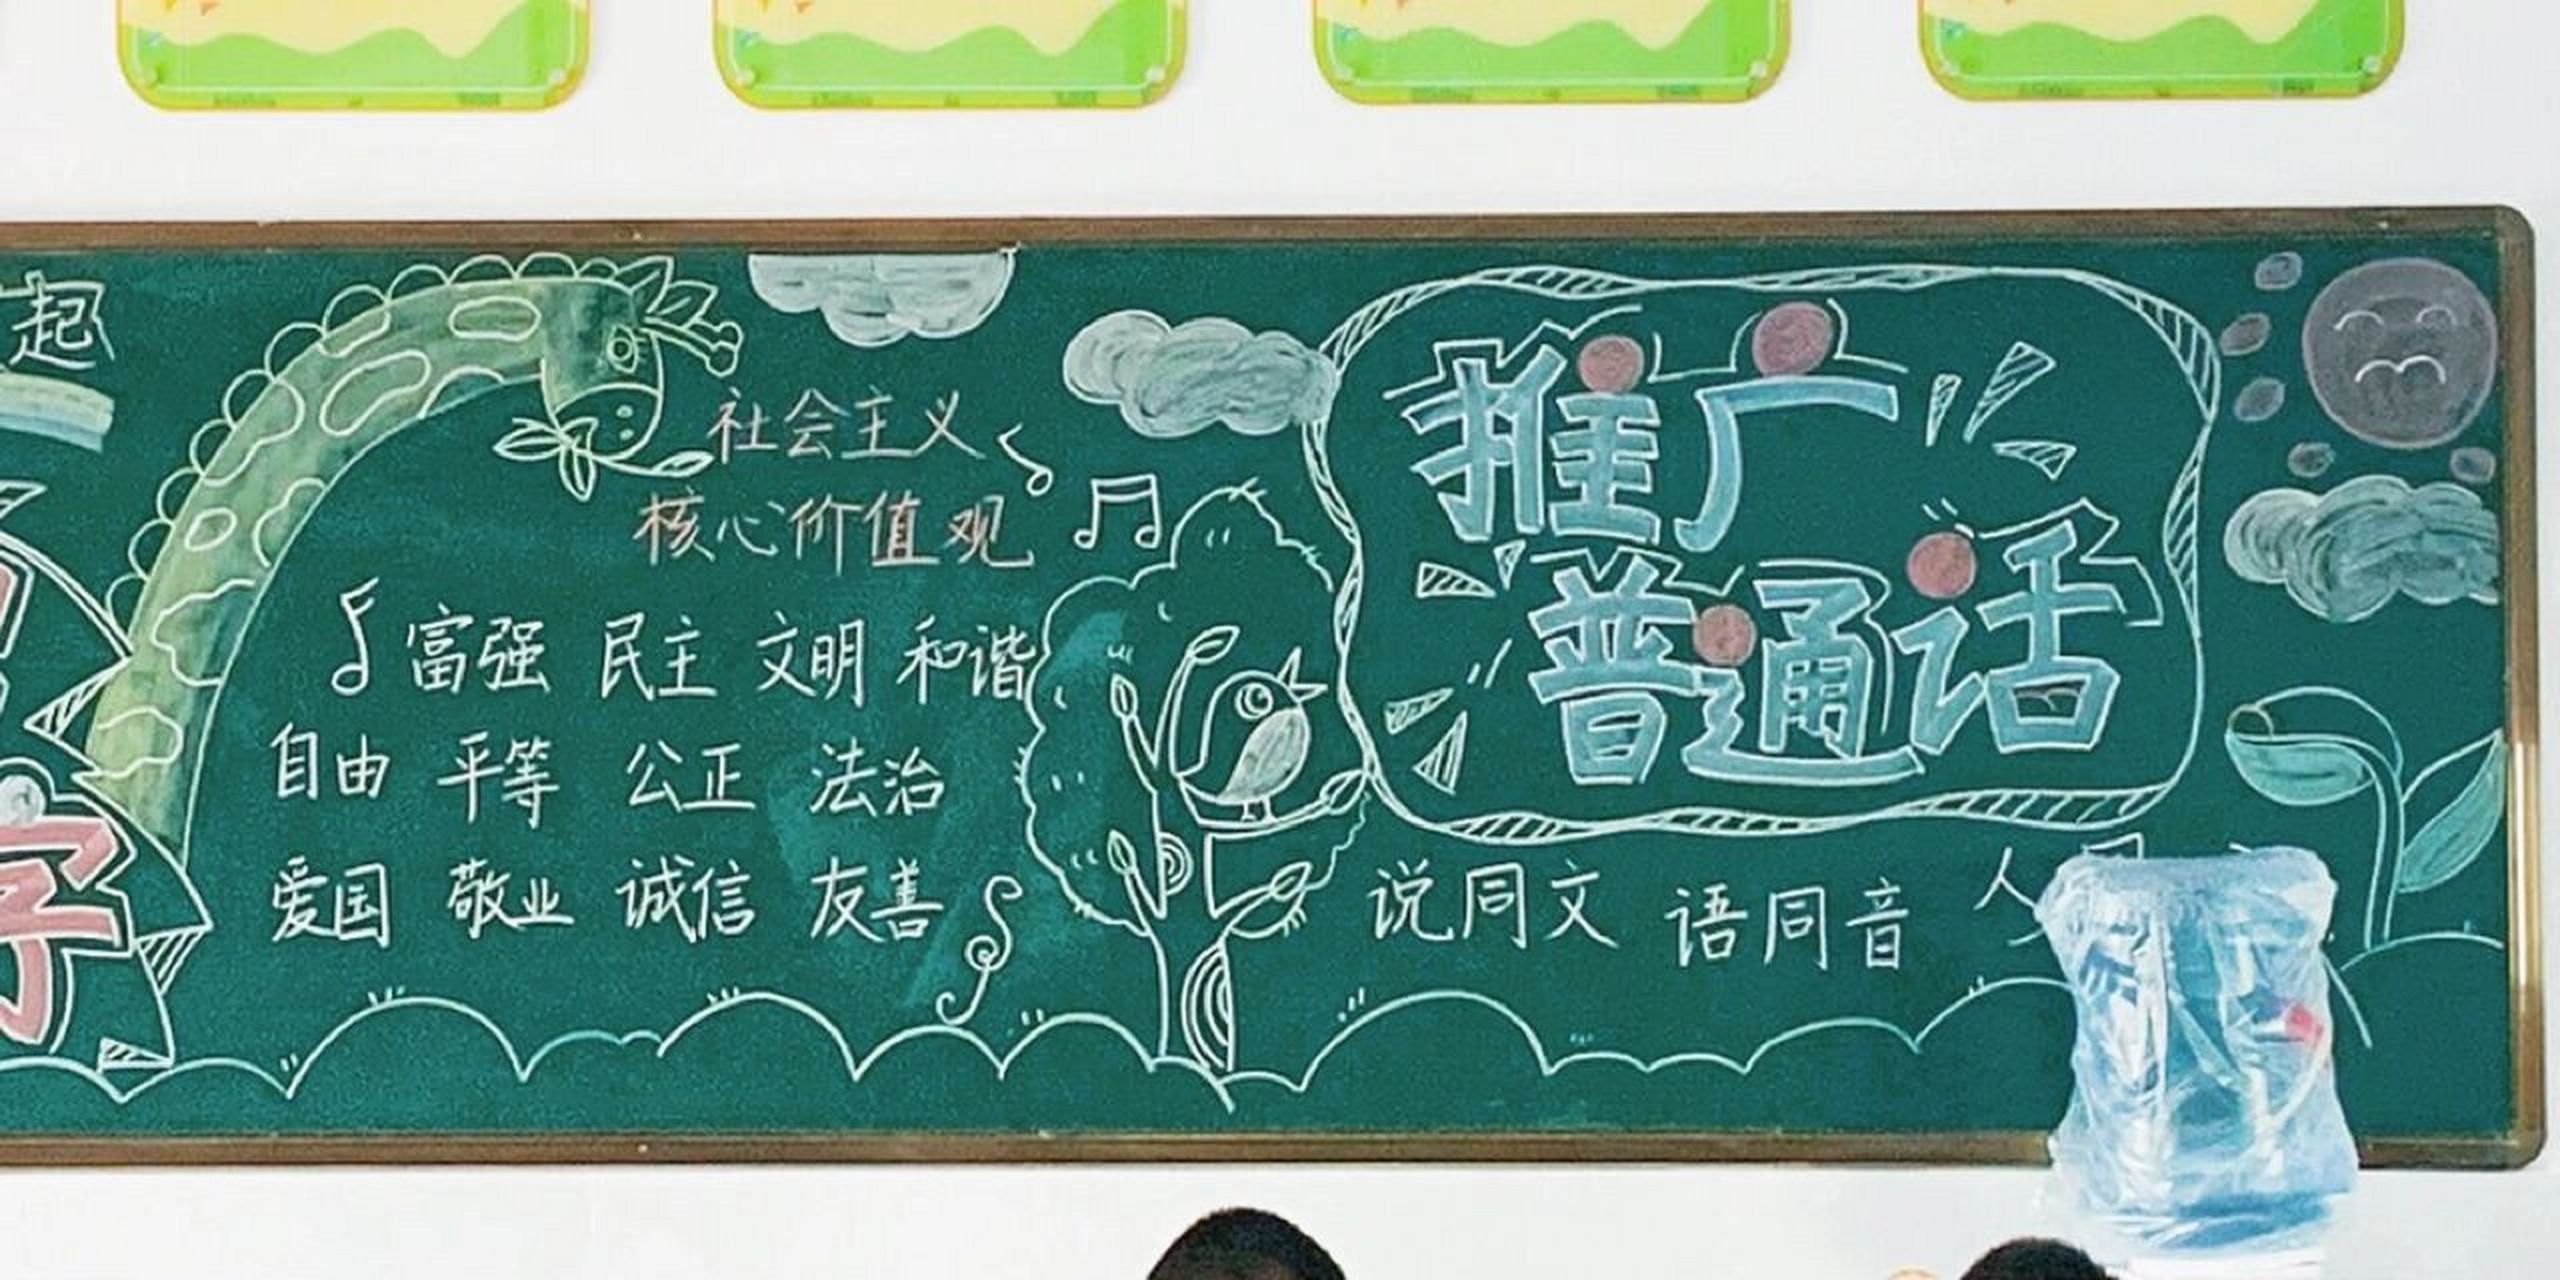 起
字
社会主义
核心价值观
富强 民主 文明 和谐
自由 平等 公正 法治
爱国 敬业 诚信 友善
推广
普通话
说同文 语同音 人